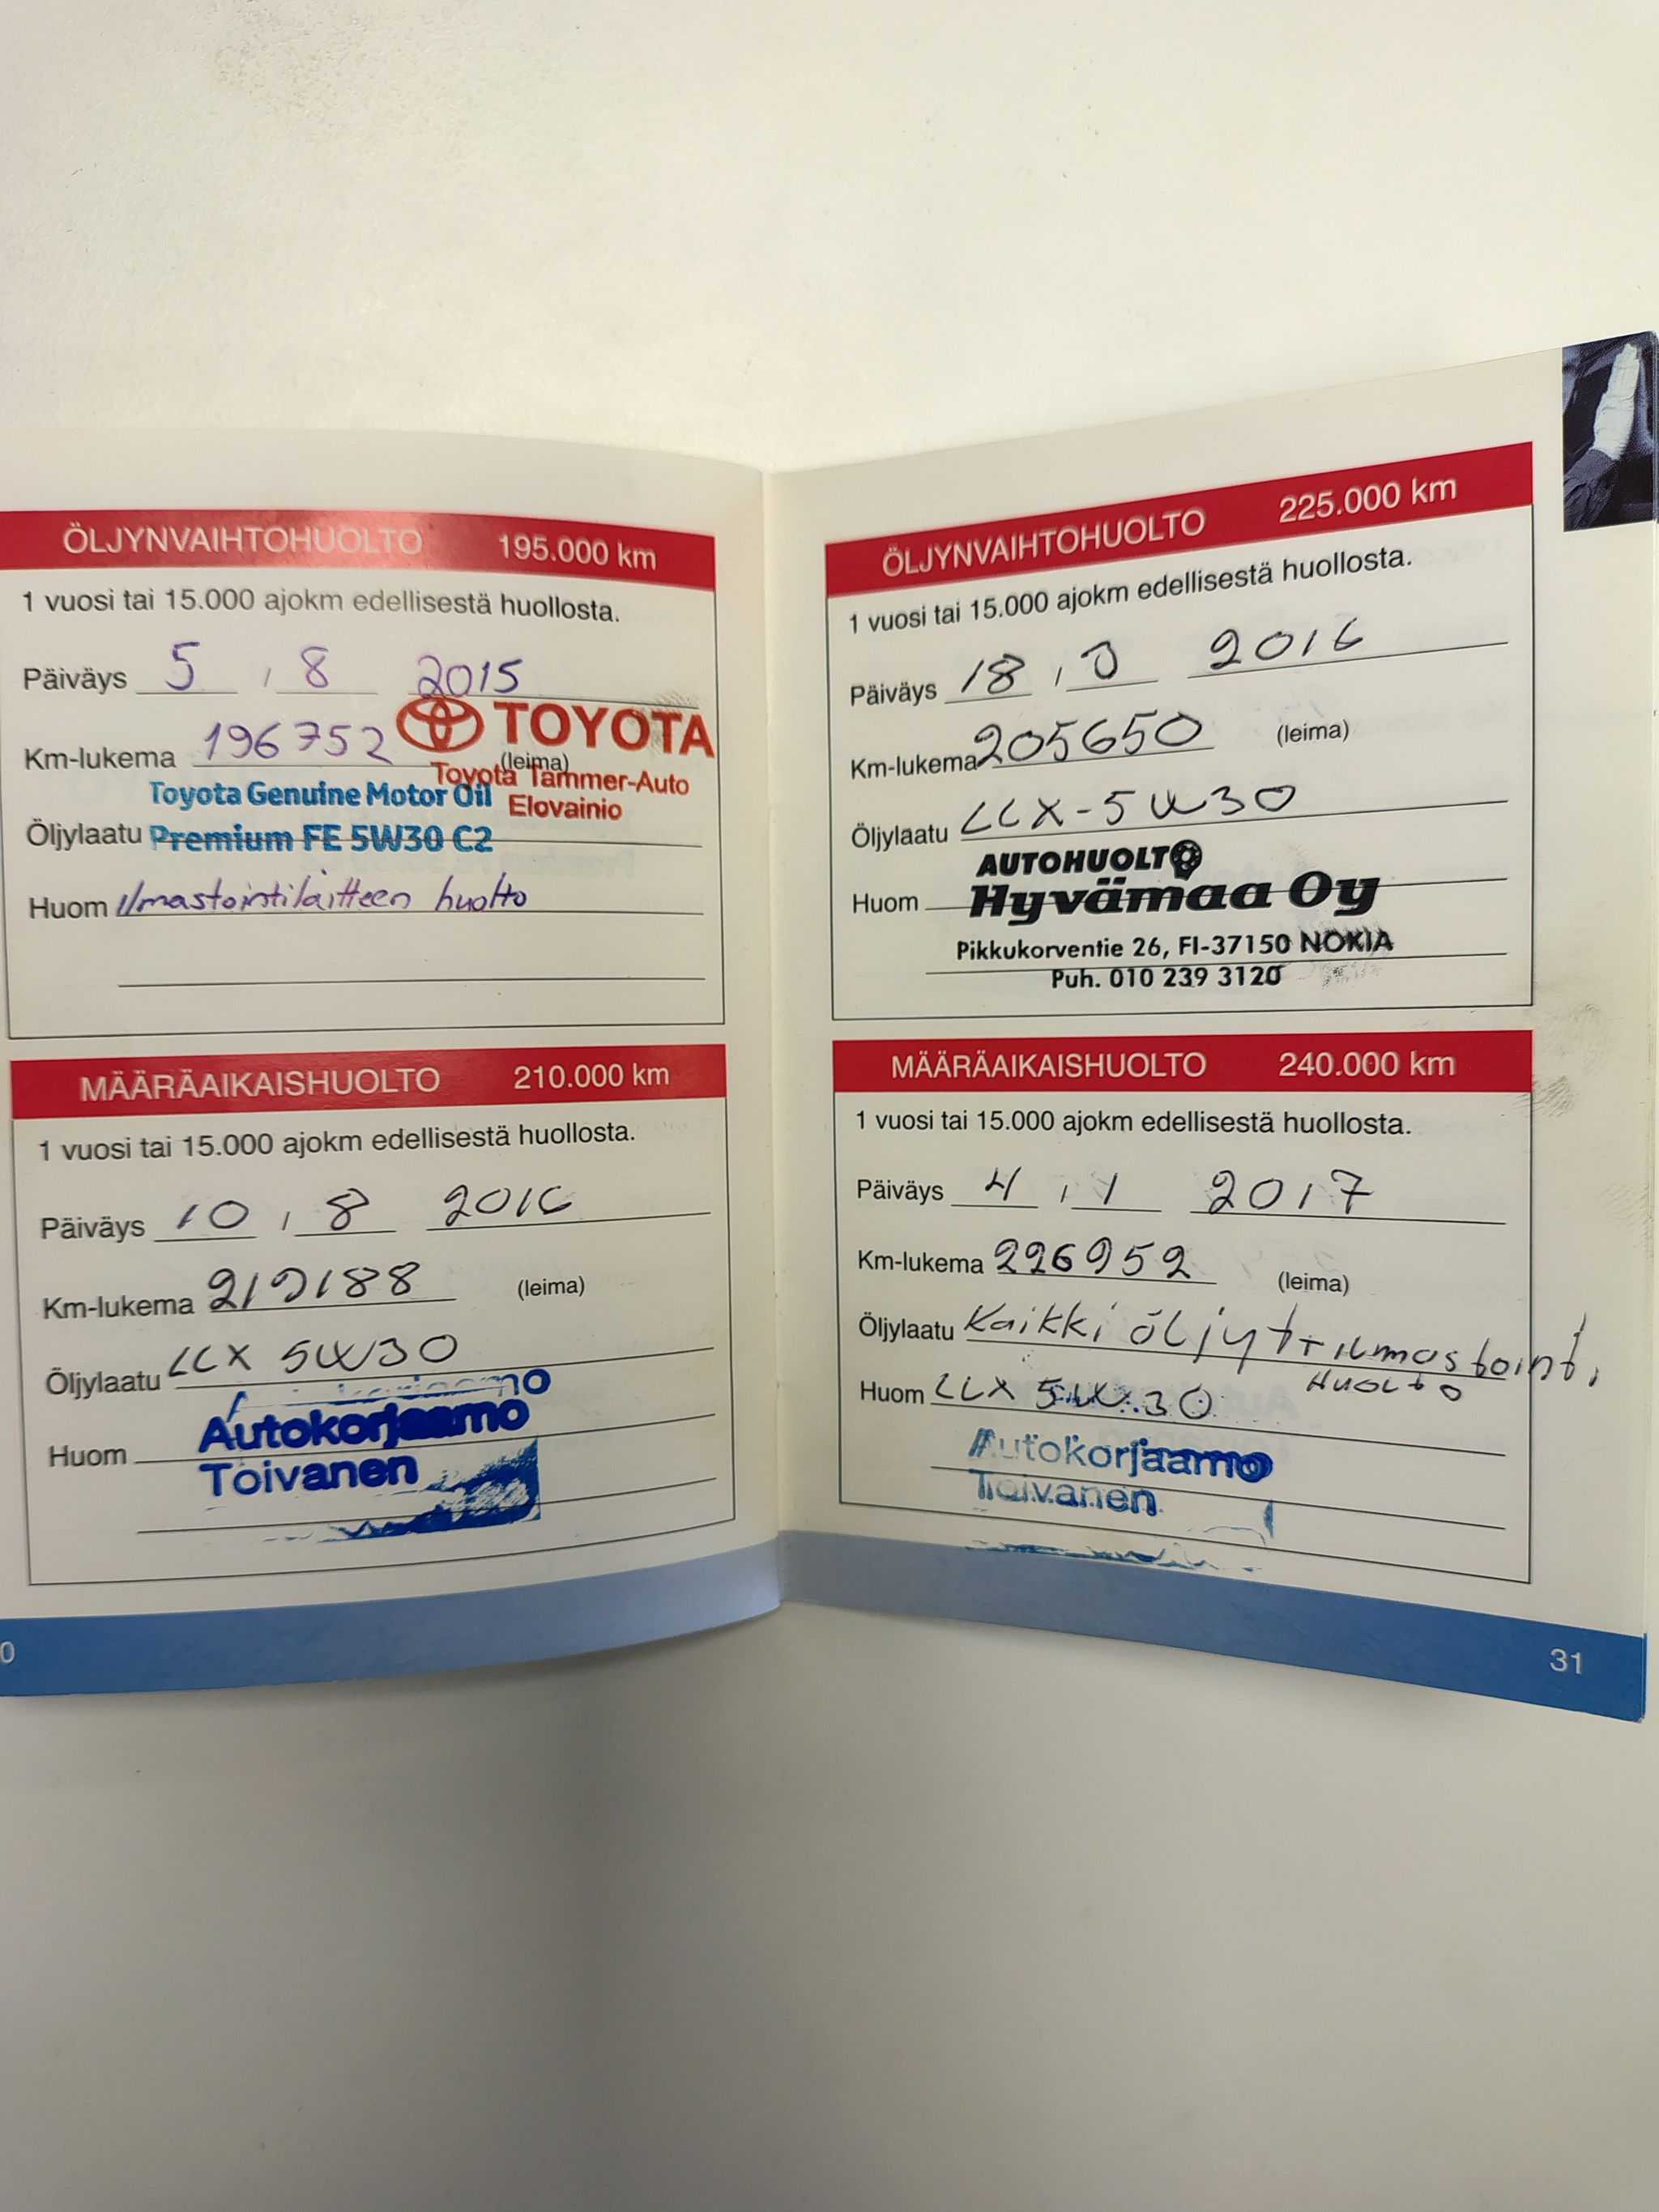 ÖLJYNVAIHTOHUOLTO 195.000 km
1 vuosi tai 15.000 ajokm edellisestä huollosta.
Päiväys 5 , 8 2015
TOYOTA
Km-lukema 196752 (leima)
Toyota Tammer-Auto
Elovainio
Toyota Genuine Motor Oil
Öljylaatu Premium FE 5W30 C2
Huom Ilmastointilaitteen huolto
MÄÄRÄAIKAISHUOLTO 210.000 km
1 vuosi tai 15.000 ajokm edellisestä huollosta.
Päiväys 10 , 8 2016
Km-lukema (leima)
Öljylaatu LLX 5W30
Autokorjaamo
Huom
Toivanen
0
ÖLJYNVAIHTOHUOLTO 225.000 km
1 vuosi tai 15.000 ajokm edellisestä huollosta.
Päiväys 18 , 2016
Km-lukema 205650 (leima)
Öljylaatu LLX-5W30
AUTOHUOLTO
Huom Hyvämaa Oy
Pikkukorventie 26, FI-37150 NOKIA
Puh. 010 239 3120
MÄÄRÄAIKAISHUOLTO 240.000 km
1 vuosi tai 15.000 ajokm edellisestä huollosta.
Päiväys 4 , 1 2017
Km-lukema 226952 (leima)
Öljylaatu Kaikki öljyt + ilmastointi
HUOLTO
Huom LLX 5W30
Autokorjaamo
Toivanen
31